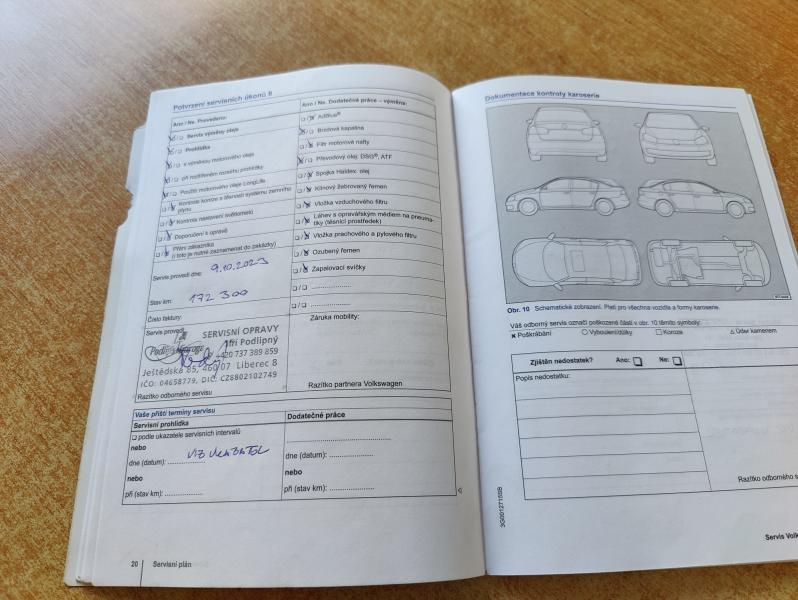 Potvrzení servisních úkonů II
Ano / Ne. Provedeno:
☐/☐ Servis výměny oleje
☐/☐ Prohlídka
☐/☐ s výměnou motorového oleje
☐/☐ při rozšířeném rozsahu prohlídky
☐/☐ Použití motorového oleje LongLife
☐/☐ Kontrola koroze a těsnosti systému zemního
plynu
☐/☐ Kontrola nastavení světlometů
☐/☐ Doporučení k opravě
☐/☐ Přání zákazníka
(i toto je nutné zaznamenat do zakázky)
Servis provedl dne: 9.10.2023
Stav km: 172 300
Číslo faktury:
Servis provedl
SERVISNÍ OPRAVY
Jiří Podlipný
+420 737 389 859
Ještědská 85, 460 07 Liberec 8
IČO: 04658779, DIČ: CZ6802102749
Razítko odborného servisu
Ano / Ne. Dodatečné práce – výměna:
☐/☐ AdBlue®
☐/☐ Brzdová kapalina
☐/☐ Filtr motorové nafty
☐/☐ Převodový olej: DSG®, ATF
☐/☐ Spojka Haldex: olej
☐/☐ Klínový žebrovaný řemen
☐/☐ Vložka vzduchového filtru
☐/☐ Láhev s opravářským médiem na pneuma-
tiky (těsnicí prostředek)
☐/☐ Vložka prachového a pylového filtru
☐/☐ Ozubený řemen
☐/☐ Zapalovací svíčky
☐/☐ ....................
☐/☐ ....................
Záruka mobility:
Razítko partnera Volkswagen
Vaše příští termíny servisu
Servisní prohlídka
☐ podle ukazatele servisních intervalů
nebo
dne (datum): ....................
nebo
při (stav km): ....................
Dodatečné práce
dne (datum): ....................
nebo
při (stav km): ....................
20
Servisní plán
Dokumentace kontroly karoserie
Obr. 10 Schematické zobrazení: Platí pro všechna vozidla a formy karoserie.
Váš odborný servis označí poškozené části v obr. 10 těmito symboly:
✖ Poškrábání ○ Vyboulení/důlky ☐ Koroze △ Úder kamenem
Zjištěn nedostatek? Ano: ☐ Ne: ☐
Popis nedostatku:
Razítko odborného s
3G0012715SB
Servis Volk